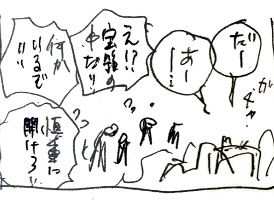 だー
あー
!…
ガチャ
え!?
宝箱の
中なり!
何か
いるで
!!!
慎重に
開けろい